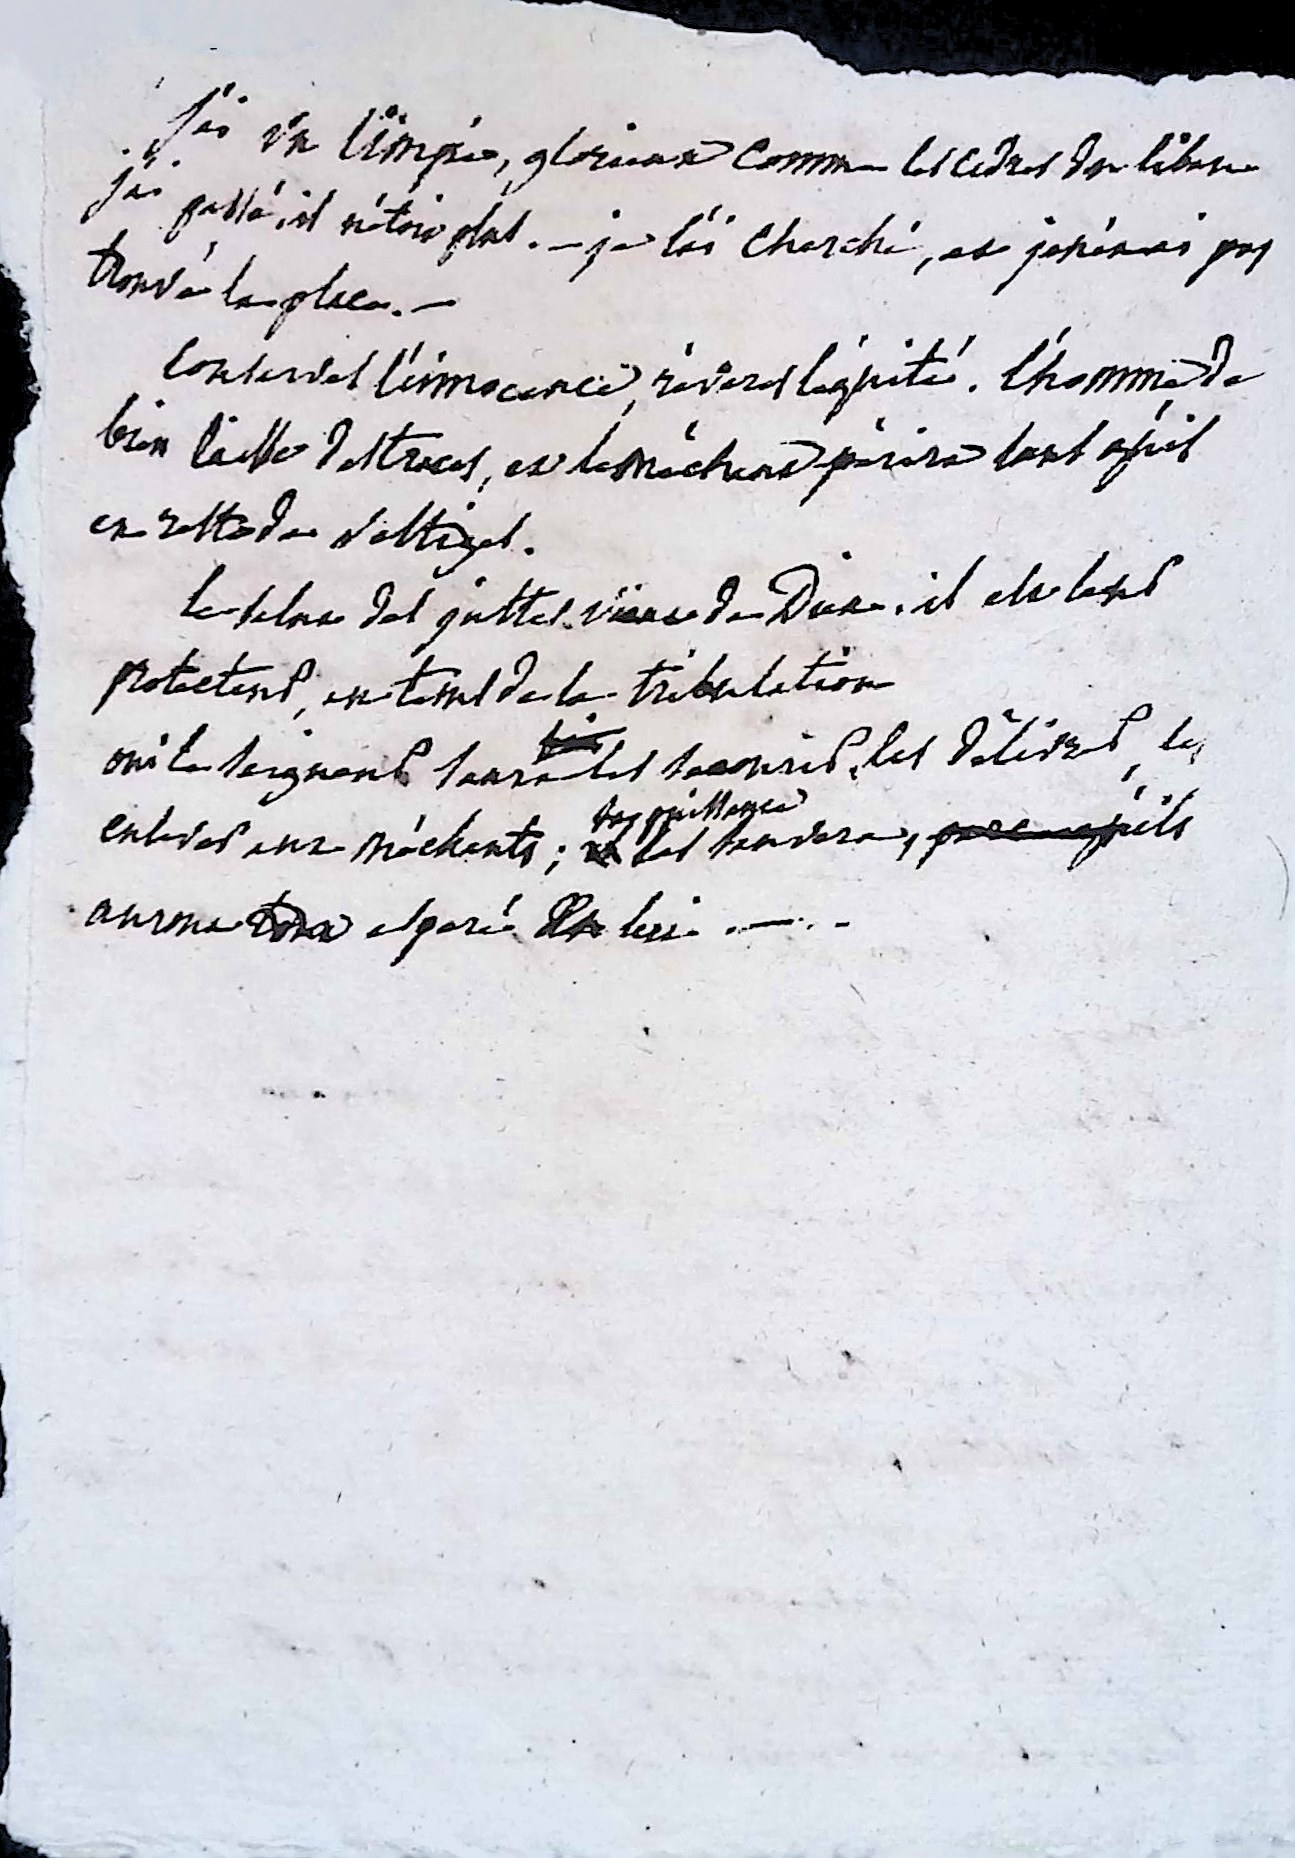 j'ai vu l'impie, glorieux comme les cèdres du liban
j'ai passé, il n'étoit plus. — je l'ai cherché, et je n'en ai pas
trouvé la place. —
Conservés l'innocence, révérés l'équité. l'homme de
bien laisse des traces, et le méchant périra sans qu'il
en reste de vestiges.
le salut des justes vient de Dieu. il est leur
protecteur, au tems de la tribulation
oui le seigneur saura les secourir, les délivrer, les
enlever aux méchants ; sa puissance les sauvera, parce qu'ils
auront espéré en lui . — . -